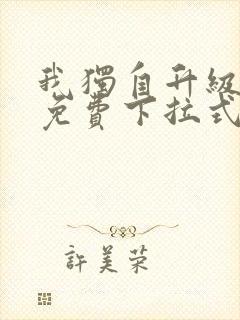 我獨自升級
免費下拉式
許美荣